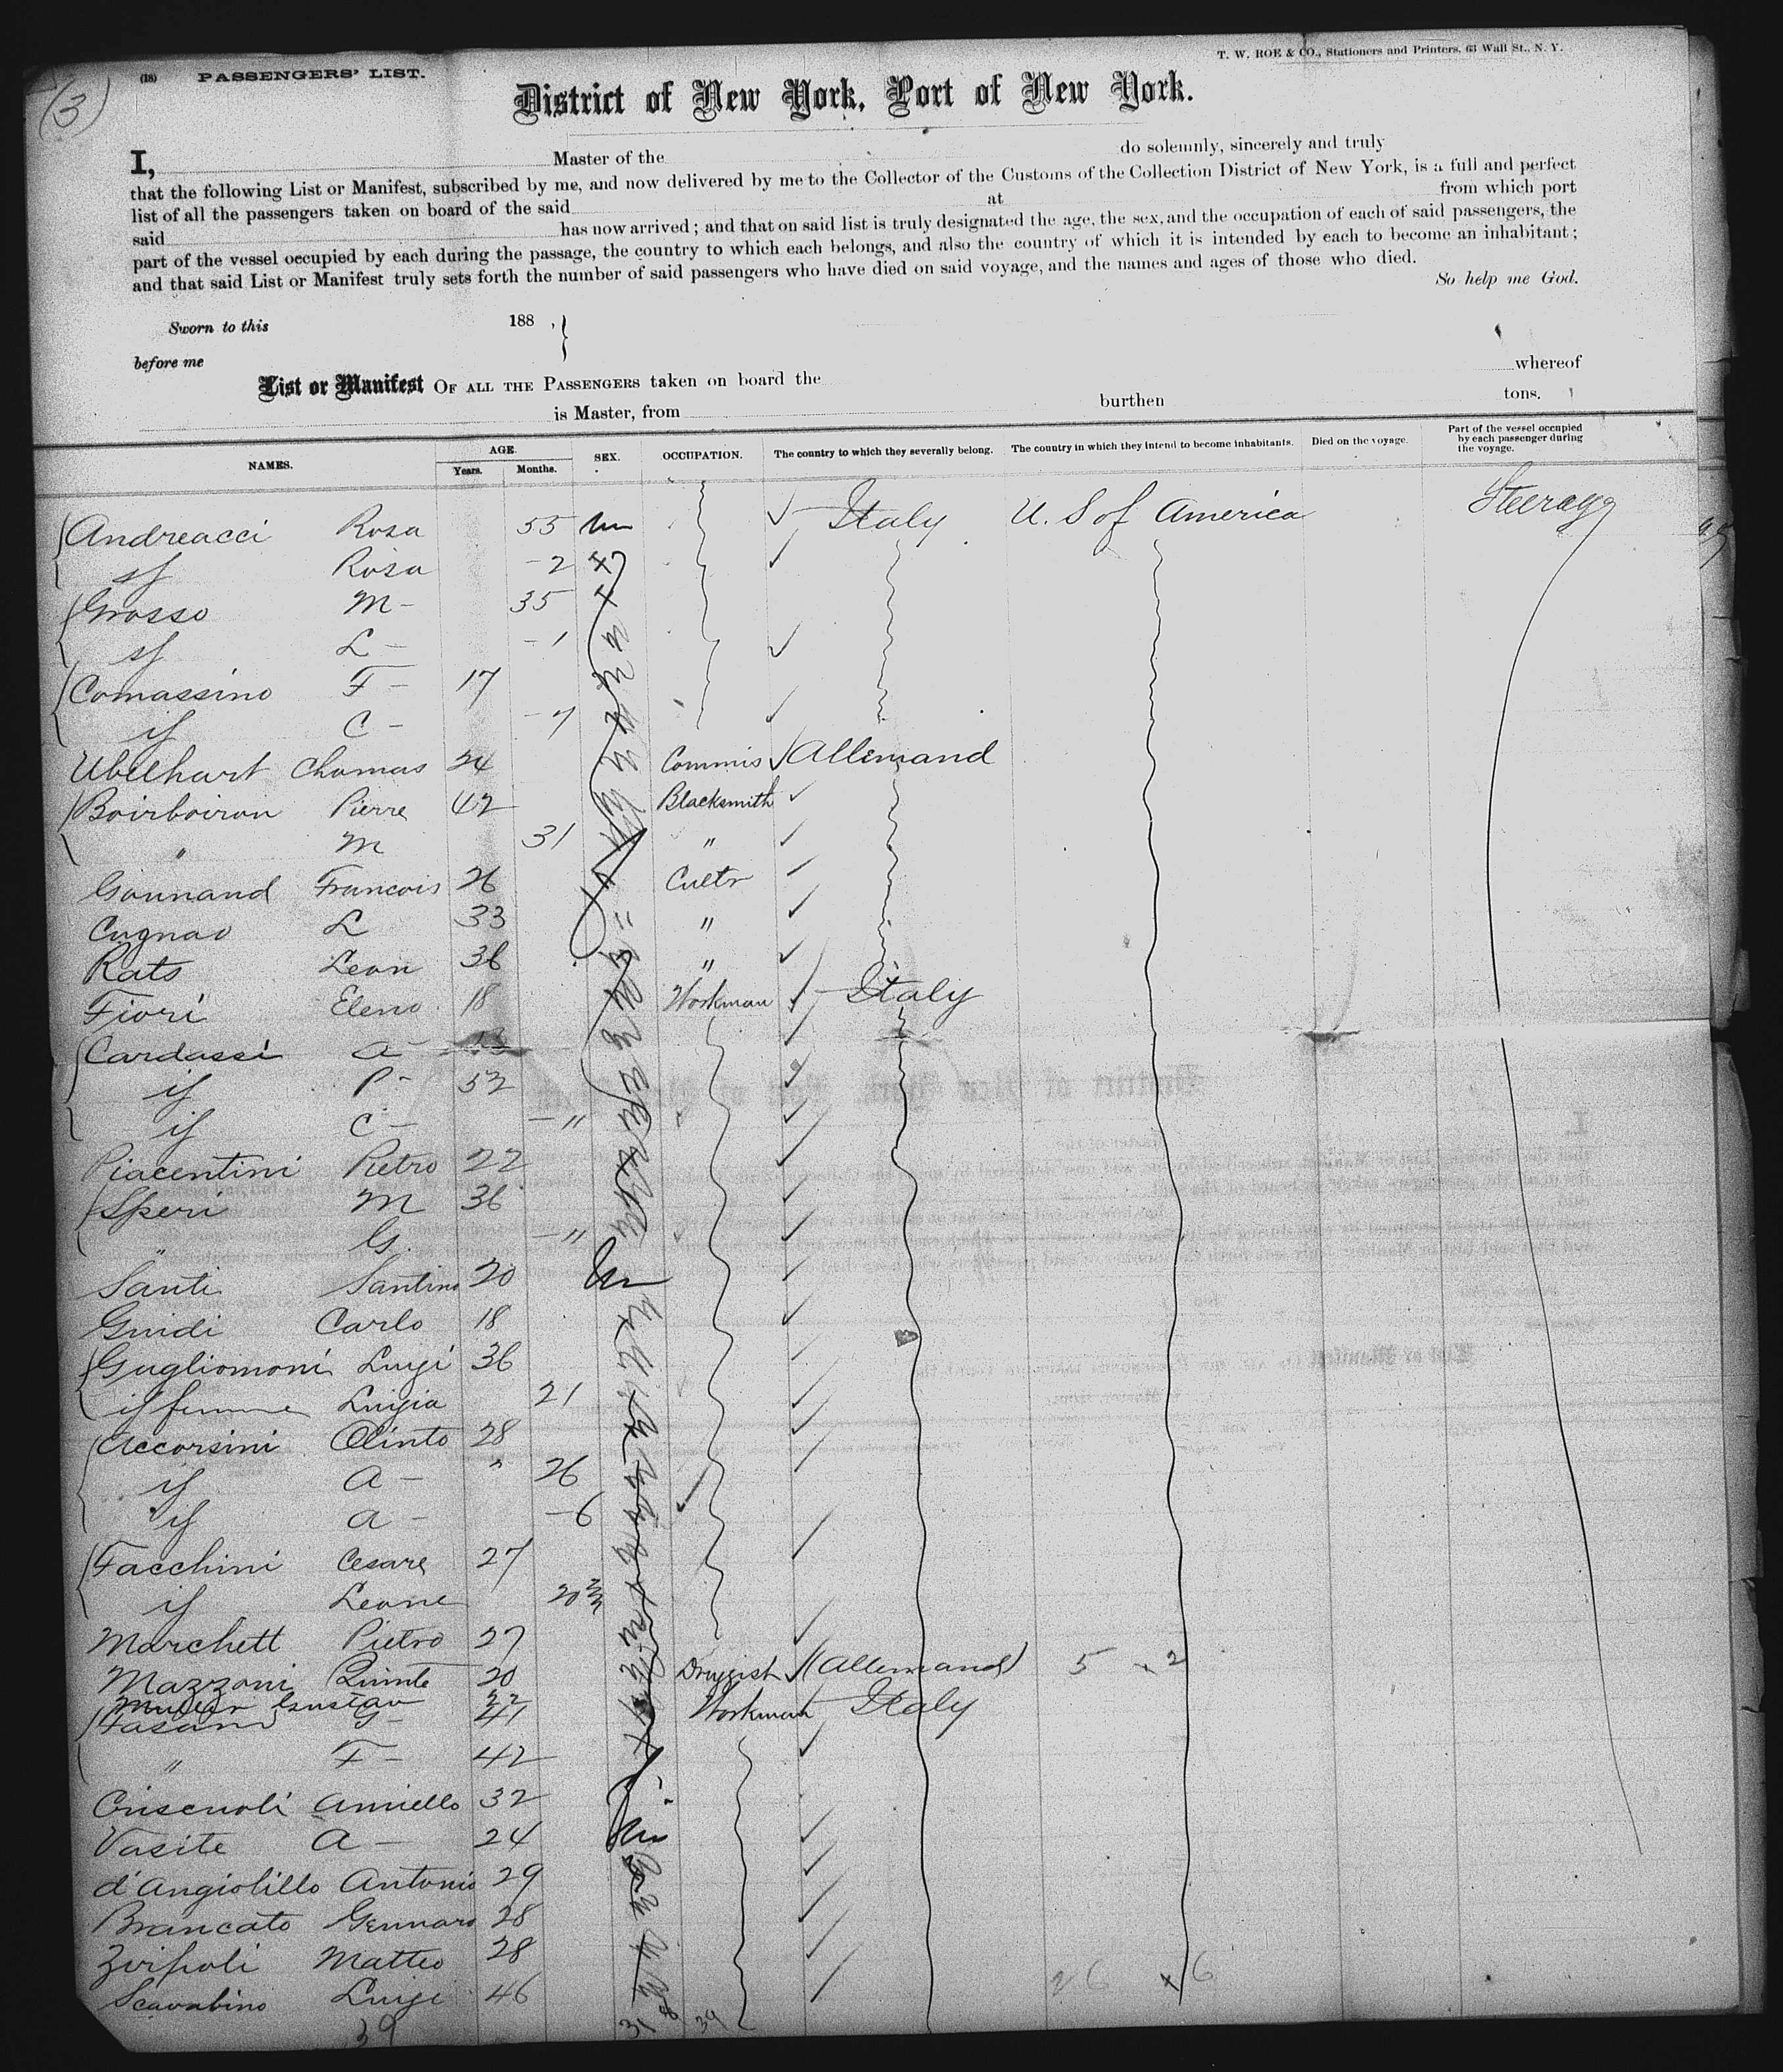 T. W. ROE & CO., Stationers and Printers, 63 Wall St., N. Y.
(3)
(18) PASSENGERS' LIST.
District of New York, Port of New York.
I, Master of the do solemnly, sincerely and truly
that the following List or Manifest, subscribed by me, and now delivered by me to the Collector of the Customs of the Collection District of New York, is a full and perfect
list of all the passengers taken on board of the said at from which port
said has now arrived; and that on said list is truly designated the age, the sex, and the occupation of each of said passengers, the
part of the vessel occupied by each during the passage, the country to which each belongs, and also the country of which it is intended by each to become an inhabitant;
and that said List or Manifest truly sets forth the number of said passengers who have died on said voyage, and the names and ages of those who died.
So help me God.
Sworn to this 188 ,
before me
List or Manifest OF ALL THE PASSENGERS taken on board the whereof
is Master, from burthen tons.
NAMES. AGE. Years. Months. SEX. OCCUPATION. The country to which they severally belong. The country in which they intend to become inhabitants. Died on the voyage. Part of the vessel occupied by each passenger during the voyage.
Andreacci Rosa 55 Italy U. S of America Steerage
Rosa - 2
Grosso M - 35
L - - 1
Comassino F - 17
C - - 7
Ubelhart Chomas 24 Commis Allemand
Boirboiron Pierre 42 Blacksmith
" M 31 "
Gounand Francois 26 Cultr
Cugnao L 33 "
Rats Leon 36 "
Fiori Eleno 18 Workman Italy
Cardassi a -
if P - 52
if C - - "
Piacentini Pietro 22
Speri M 36
" G. - "
Santi Santino 20
Guidi Carlo 18
Gugliomoni Luigi 36
if femme Luigia 21
Accorsini Olinto 28
if A - " 26
if a - - 6
Facchini Cesare 27
if Leone 20
Marchett Pietro 27
Mazzoni Quinte 20 Druggist (Allemand) 5 2
Muller Gustav 22
Fasani G - 41 Workman Italy
" F - 42
Criscuoli Aniello 32
Vasite A - 24
d'Angiolillo Antonio 29
Brancato Gennaro 28
Zirpoli Matteo 28
Scavabino Luigi 46 26 x 6
39 31 8 39